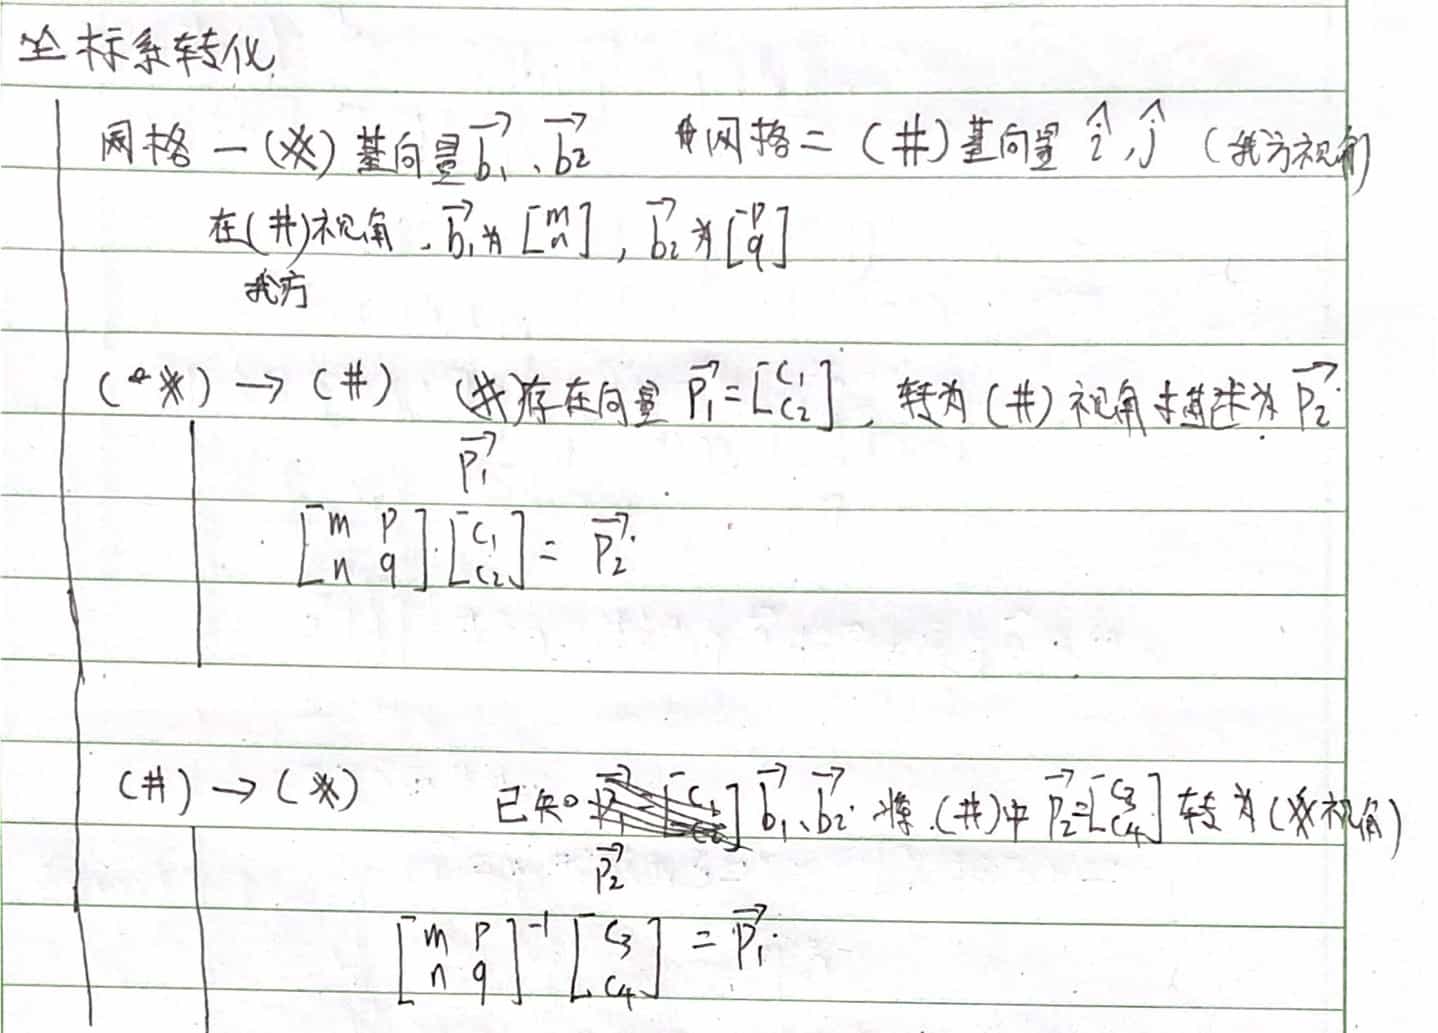 坐标系转化
网格一(※)基向量 $\vec{b_1}$、$\vec{b_2}$ 网格二(#)基向量 $\hat{i}$, $\hat{j}$ (我方视角)
在(#)视角, $\vec{b_1}$为 $\begin{bmatrix} m \\ n \end{bmatrix}$, $\vec{b_2}$为 $\begin{bmatrix} p \\ q \end{bmatrix}$
我方
(※) → (#) (※)存在向量 $\vec{P_1} = \begin{bmatrix} c_1 \\ c_2 \end{bmatrix}$, 转为(#)视角描述为 $\vec{P_2}$
$\vec{P_1}$
$\begin{bmatrix} m & p \\ n & q \end{bmatrix} \cdot \begin{bmatrix} c_1 \\ c_2 \end{bmatrix} = \vec{P_2}$
(#) → (※) 已知 $\vec{b_1}$、$\vec{b_2}$ 将(#)中 $\vec{P_2} = \begin{bmatrix} c_3 \\ c_4 \end{bmatrix}$ 转为(※视角)
$\vec{P_2}$
$\begin{bmatrix} m & p \\ n & q \end{bmatrix}^{-1} \begin{bmatrix} c_3 \\ c_4 \end{bmatrix} = \vec{P_1}$